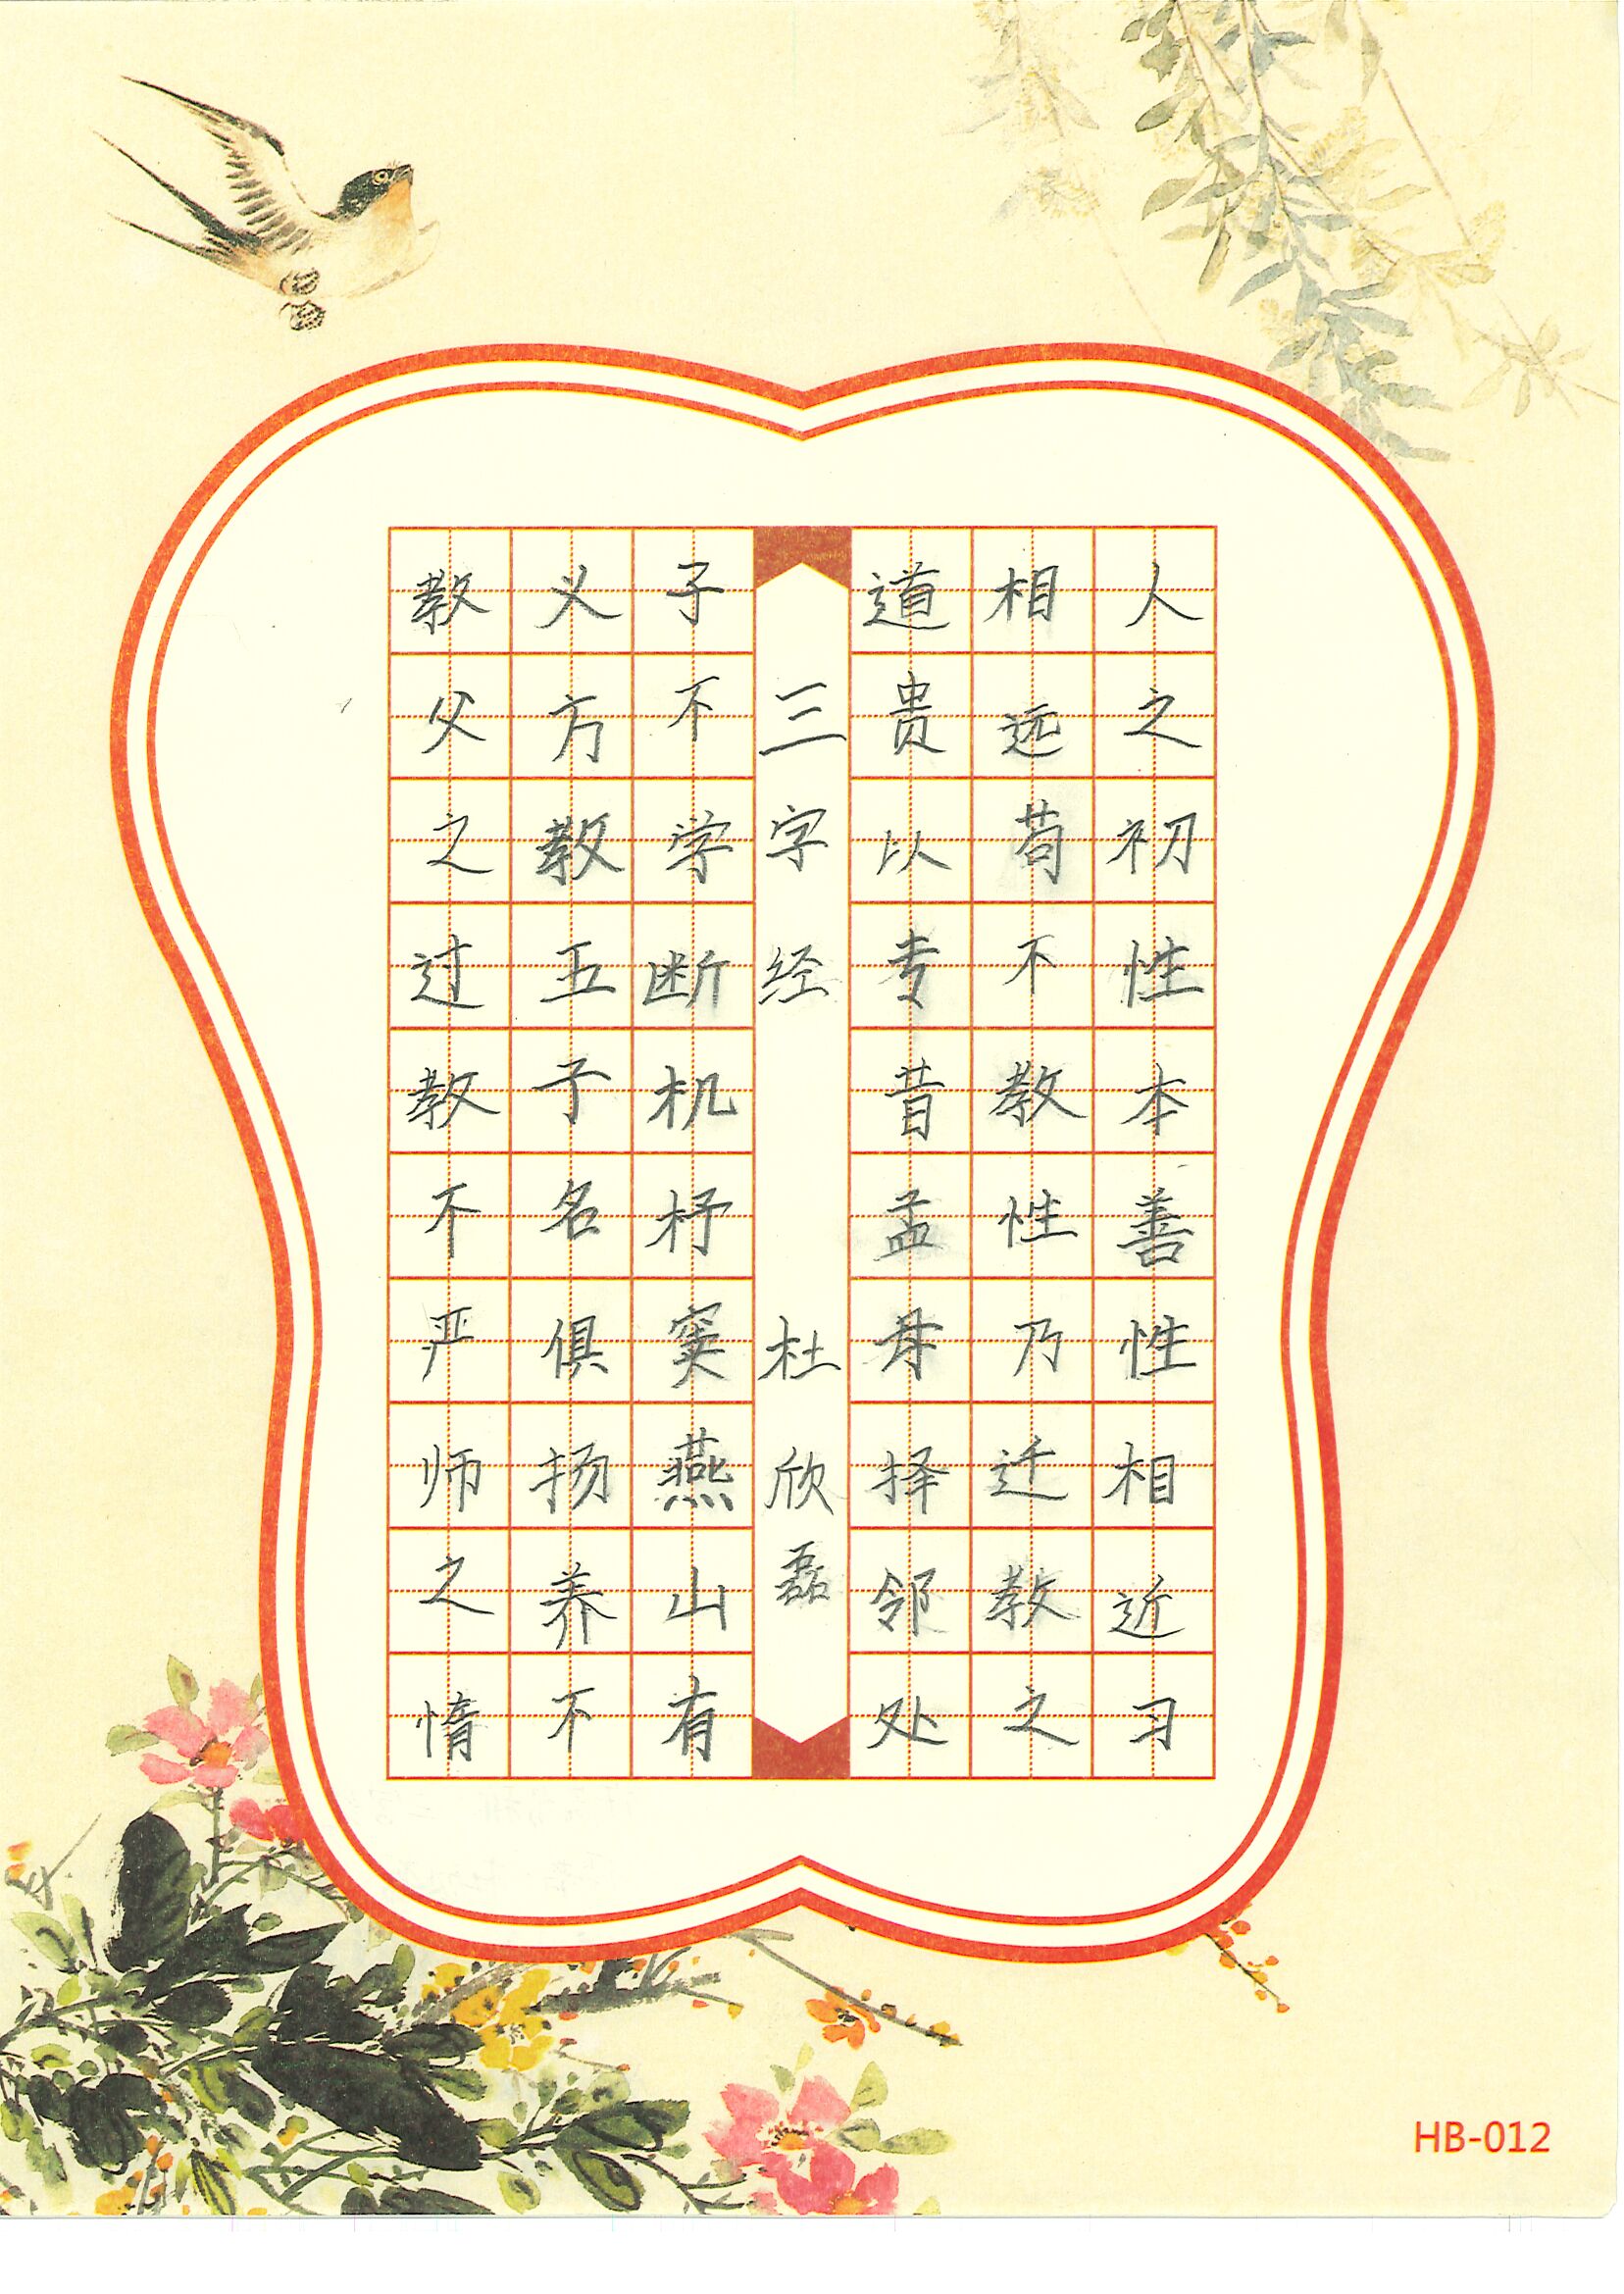 人之初性本善性相近习
相远苟不教性乃迁教之
道贵以专昔孟母择邻处
三字经 杜欣磊
子不学断机杼窦燕山有
义方教五子名俱扬养不
教父之过教不严师之惰
HB-012